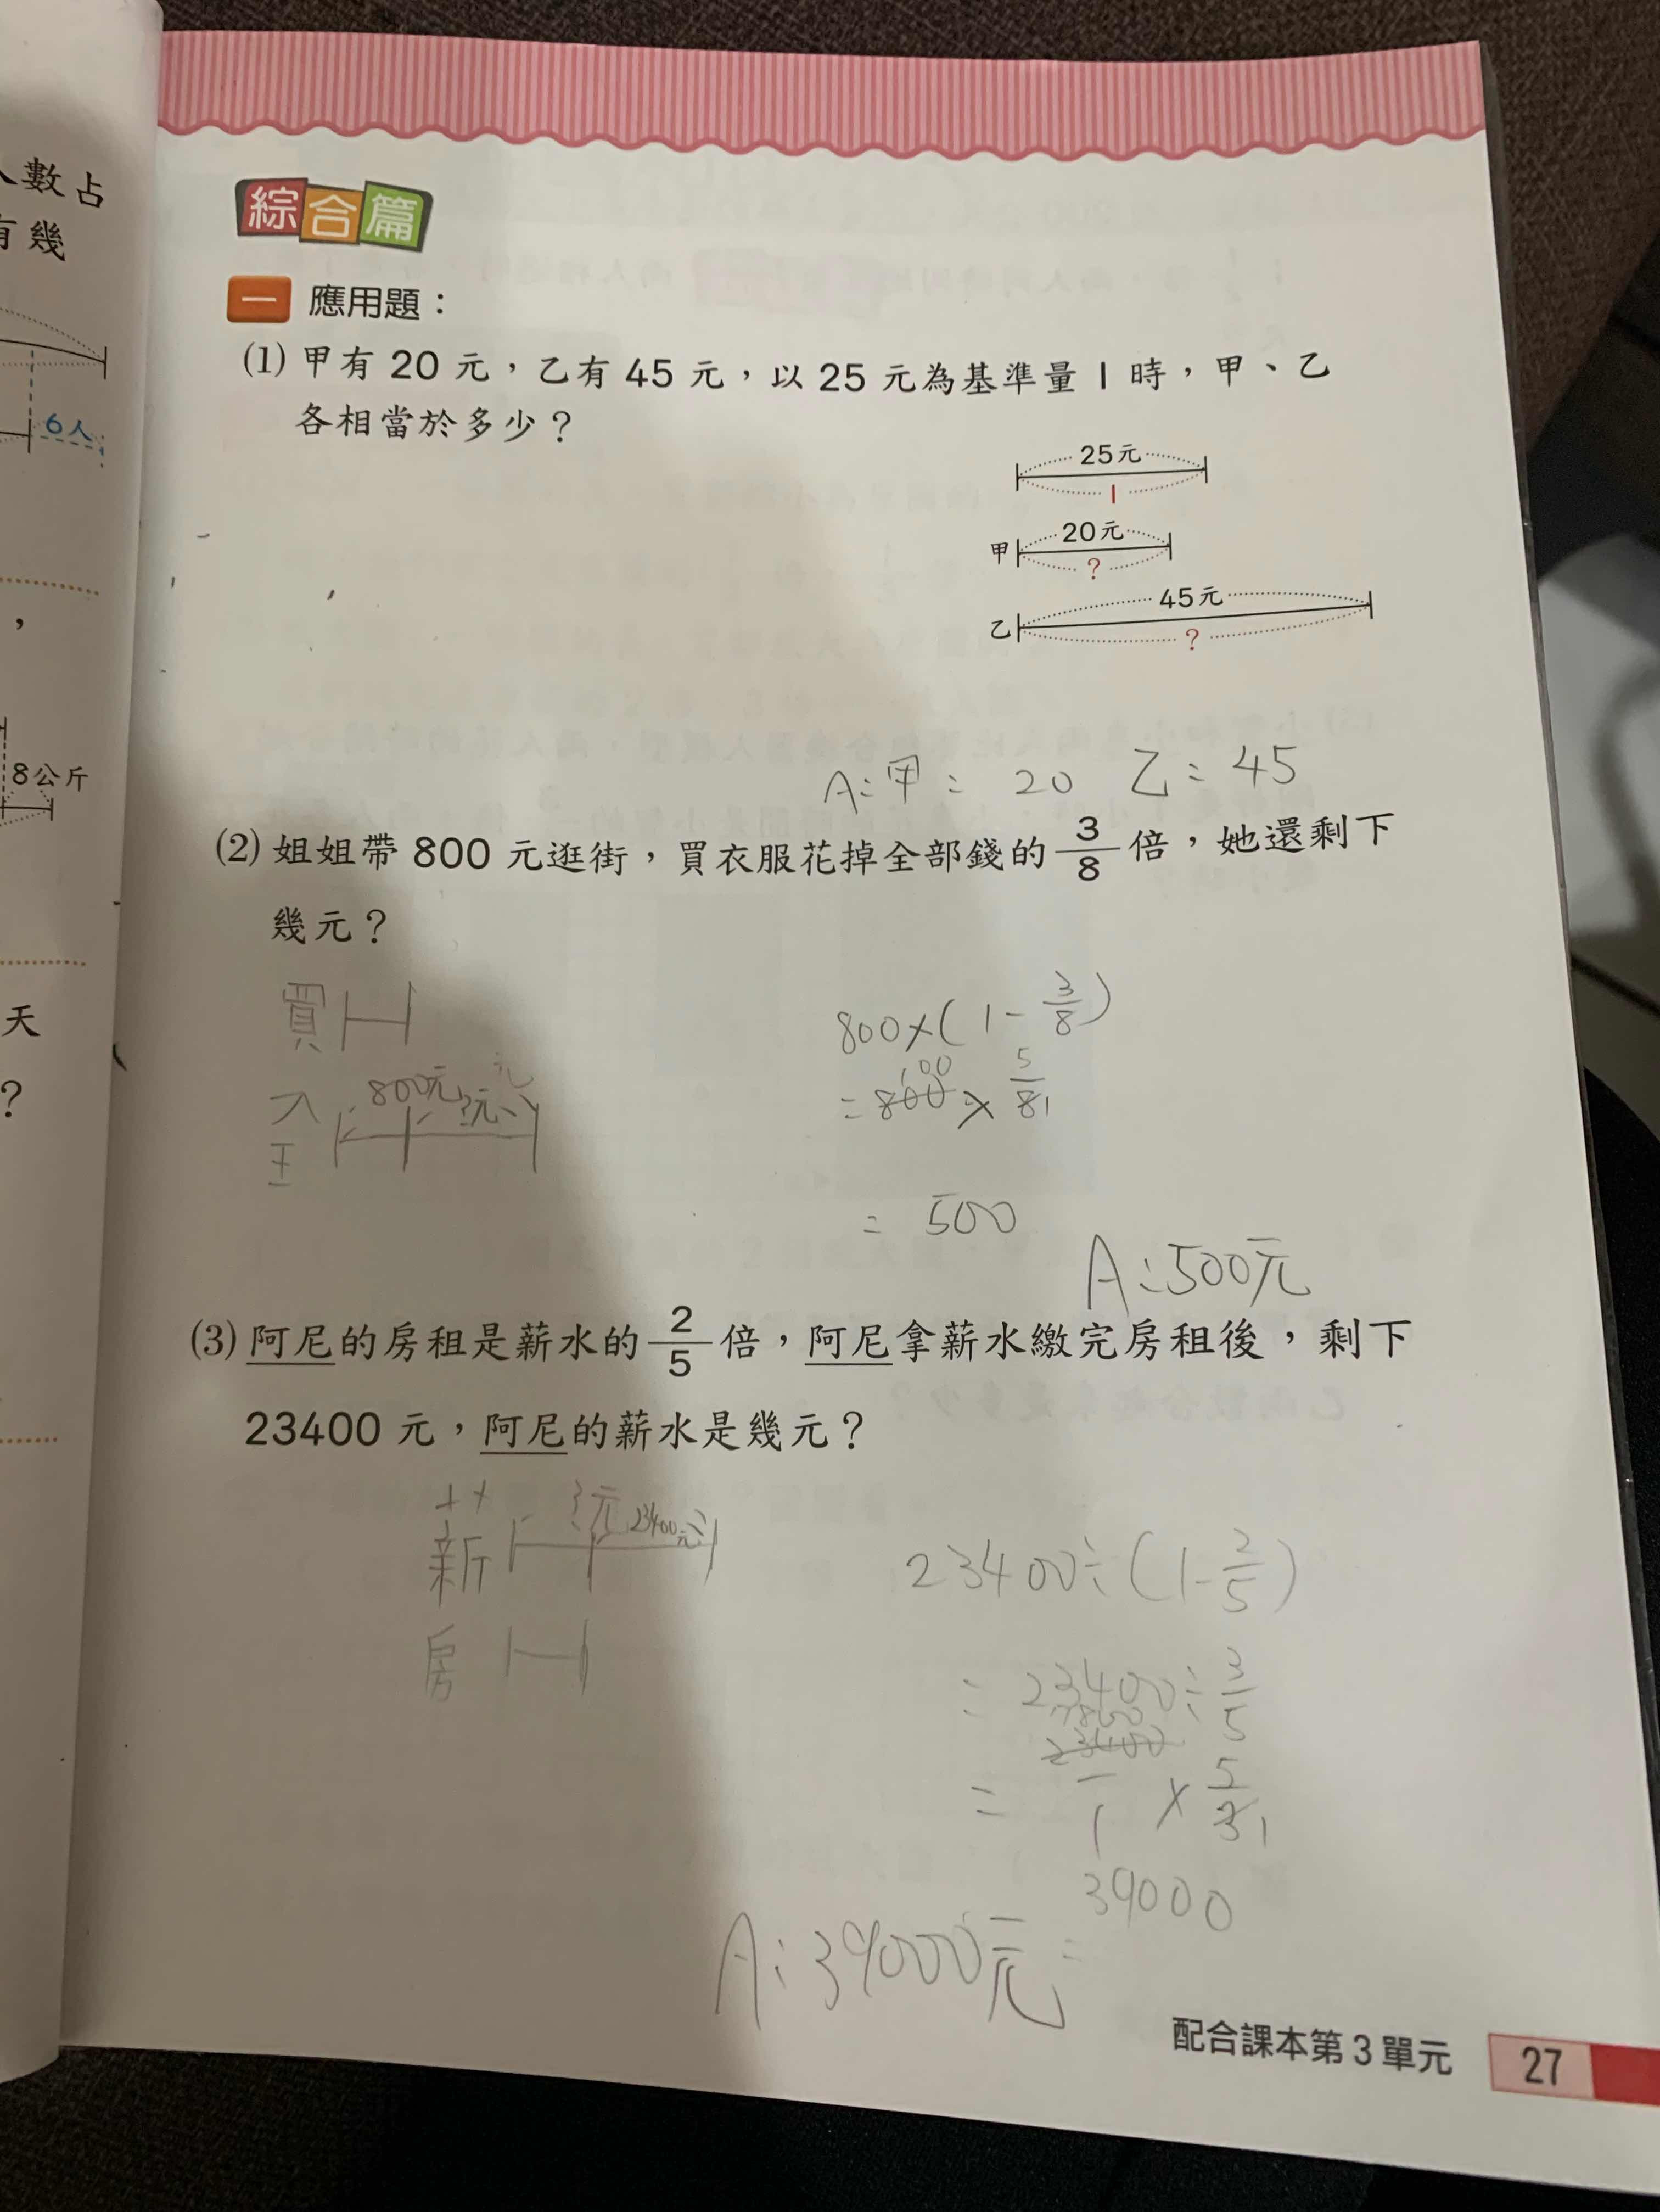 人數占
有幾
6人
,
8公斤
天
?
綜合篇
一 應用題:
(1) 甲有 20 元,乙有 45 元,以 25 元為基準量 1 時,甲、乙
各相當於多少?
25元
1
甲 20元
?
乙 45元
?
A:甲= 20 乙= 45
(2) 姐姐帶 800 元逛街,買衣服花掉全部錢的 3/8 倍,她還剩下
幾元?
買
800元 ?元
800×(1-3/8)
=800×5/8
100 1
= 500
A:500元
(3) 阿尼的房租是薪水的 2/5 倍,阿尼拿薪水繳完房租後,剩下
23400 元,阿尼的薪水是幾元?
薪 ?元 23400元
房
23400÷(1-2/5)
= 23400÷3/5
7800
= 23400/1 × 5/3 1
= 39000
A:39000元
配合課本第 3 單元 27